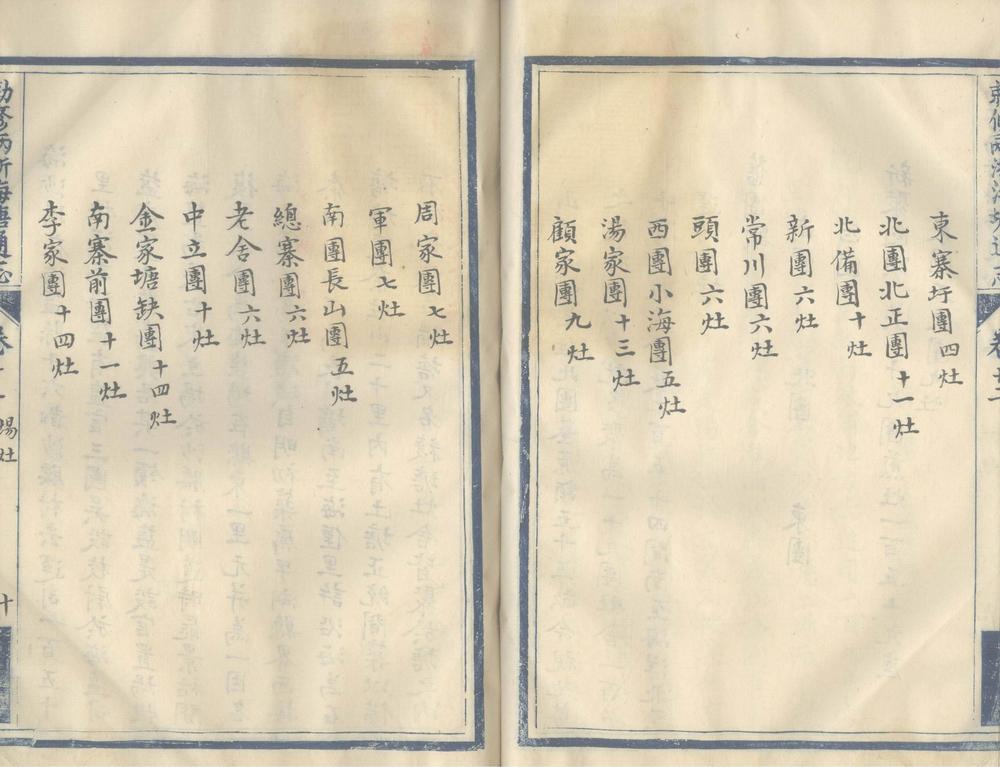 東寨圩團四灶
北團北正團十一灶
北備團十灶
新團六灶
常川團六灶
頭團六灶
西團小海團五灶
湯家團十三灶
顧家團九灶
周家團七灶
軍團七灶
南團長山團五灶
總寨團六灶
老舍團六灶
中立團十灶
金家塘缺團十四灶
南寨前團十一灶
李家團十四灶
敕修兩浙海塘通志